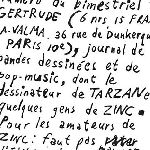 numéro du bimestriel
GERTRUDE (6 nrs 15 FRA
A-VALMA. 36 rue de Dunkerque
PARIS 10e), journal de
bandes dessinées et de
pop-music, dont le
dessinateur de TARZAN e
quelques gens de ZINC.
Pour les amateurs de
ZINC: faut pas rater